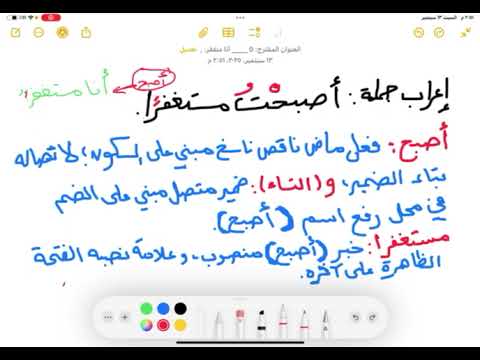 ٢:٥١ م السبت ١٣ سبتمبر
العنوان المقترح: ٥ ____ أنا متغفر: , تعديل
١٣ سبتمبر، ٢٠٢٥، ٢:٥١ م
إعراب جملة: أصبحتُ مستغفرًا.
أصبح أنا مستغفر
أصبح: فعل ماض ناقص ناسخ مبني على السكون؛ لاتصاله
بتاء الضمير، و(التاء): ضمير متصل مبني على الضم
في محل رفع اسم (أصبح).
مستغفرا: خبر (أصبح) منصوب، وعلامة نصبه الفتحة
الظاهرة على آخره.